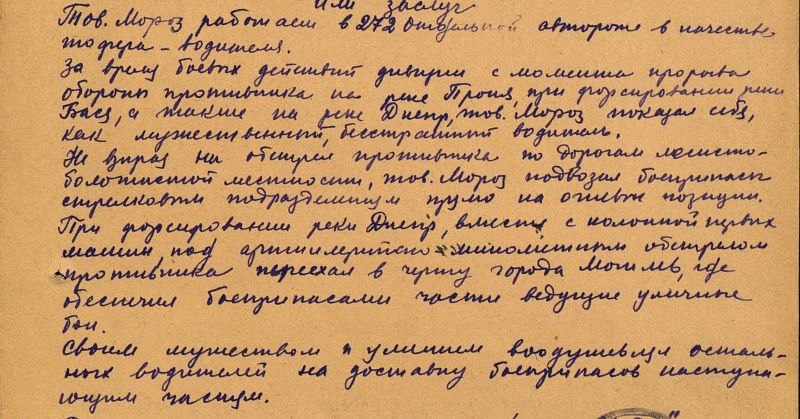 или заслуг
Тов. Мороз работает в 272 отдельной автороте в качестве
шофера - водителя.
За время боевых действий дивизии с момента прорыва
обороны противника на реке Проня, при форсировании реки
Бася, а также на реке Днепр, тов. Мороз показал себя,
как мужественный, бесстрашный водитель.
Не взирая на обстрел противника по дорогам лесисто-
болотистой местности, тов. Мороз подвозил боеприпасы
стрелковым подразделениям прямо на огневые позиции.
При форсировании реки Днепр, вместе с колонной первых
машин, под артиллерийско-минометным обстрелом
противника переехал в черту города Могилев, где
обеспечил боеприпасами части ведущие уличные
бои.
Своим мужеством и умением воодушевлял осталь-
ных водителей на доставку боеприпасов наступа-
ющим частям.